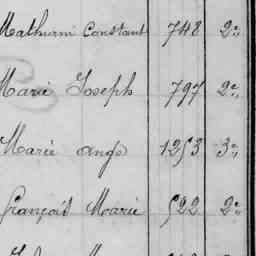 Mathurin Constant 748 2e,
Marie Joseph 797 2e,
Marie Ange 1253 3e,
François Marie 522 2e,